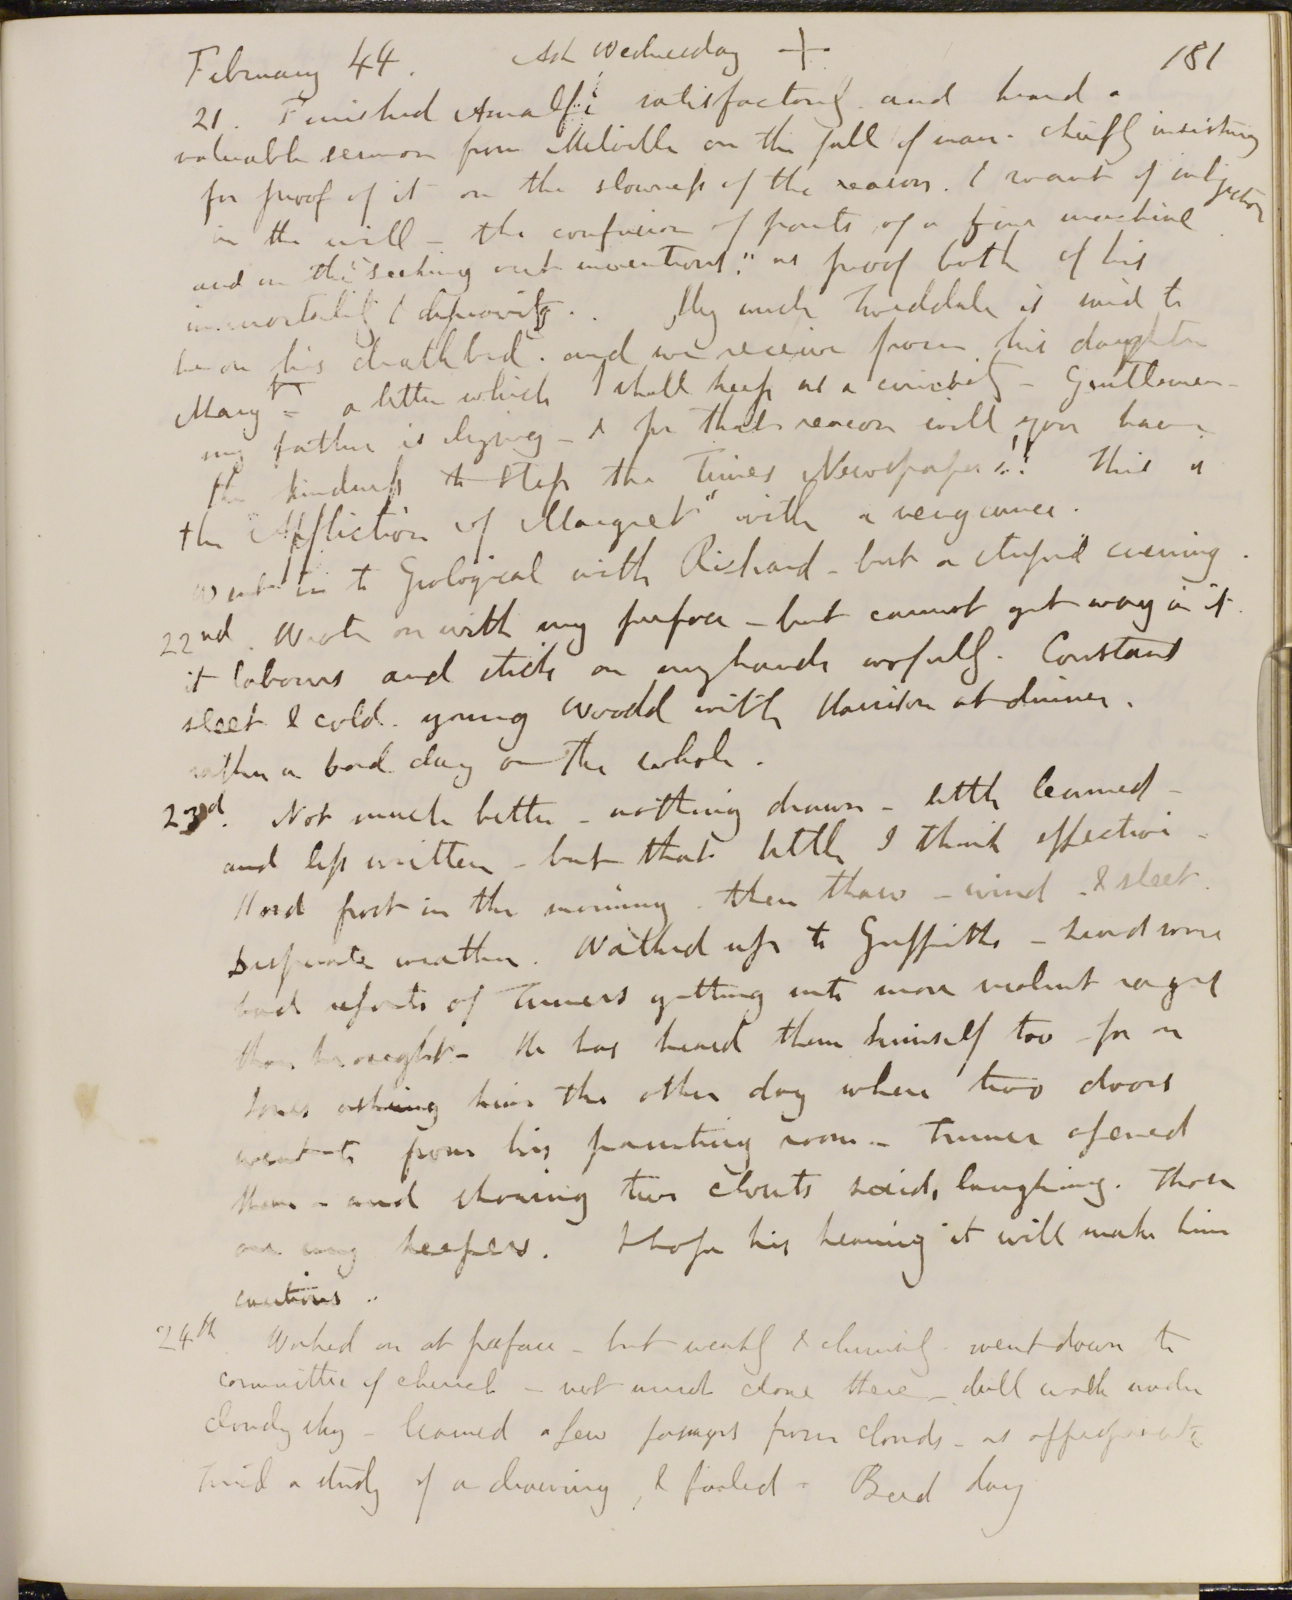 February 44. Ash Wednesday + 181
21. Finished Amalfi satisfactorily. and heard a
valuable sermon from Melville on the fall of man. chiefly insisting
for proof of it on the slowness of the reason. & want of subjection
in the will – the confusion of parts of a fine machine
and on the "seeking out inventions." as proof both of his
immortality & depravity. . My uncle Tweddale is said to
be on his death bed. and we receive from his daughter
Mary – a letter which I shall keep as a curiosity – Gentlemen –
my father is dying – & for that reason will you have
the kindness to stop the Times Newspaper!! This is
the "Affliction of Margret" with a vengeance.
Went in to Geological with Richard – but a stupid evening.
22nd. Wrote on with my preface – but cannot get way in it.
it labours and sticks on my hands wofully. Constant
sleet & cold. young Woodd with Harrison at dinner.
rather a bad day on the whole.
23d. Not much better – nothing drawn – little learned –
and less written – but that little I think effective –
Hard frost in the morning. then thaw – wind & sleet.
Desperate weather. Walked up to Griffiths – heard some
bad reports of Turners getting into more violent rages
than he ought – He has heard them himself too – for on
Jones asking him the other day where two doors
went to from his painting room – Turner opened
them – and showing two closets said, laughing. Those
are my keepers. I hope his hearing it will make him
cautious..
24th Worked on at preface – but weakly & clumsily. went down to
committee of church – not much done there – dull walk under
cloudy sky – learned a few passages from clouds – as
Tried a study of a drawing, & failed – Bad day